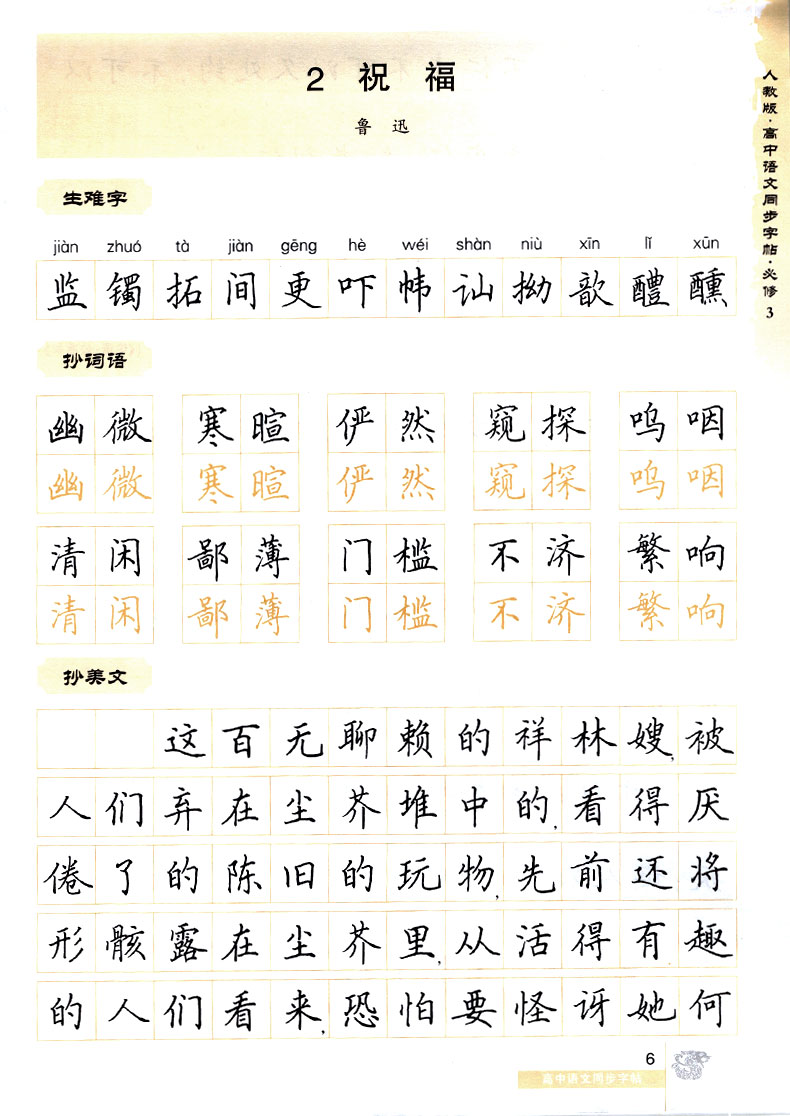 2 祝福
鲁迅
人教版·高中语文同步字帖·必修3
生难字
jiàn zhuó tà jiàn gēng hè wéi shàn niù xīn lǐ xūn
监 镯 拓 间 更 吓 帏 讪 拗 歆 醴 醺
抄词语
幽微 寒暄 俨然 窥探 呜咽
幽微 寒暄 俨然 窥探 呜咽
清闲 鄙薄 门槛 不济 繁响
清闲 鄙薄 门槛 不济 繁响
抄美文
这百无聊赖的祥林嫂,被
人们弃在尘芥堆中的,看得厌
倦了的陈旧的玩物,先前还将
形骸露在尘芥里,从活得有趣
的人们看来,恐怕要怪讶她何
6
高中语文同步字帖